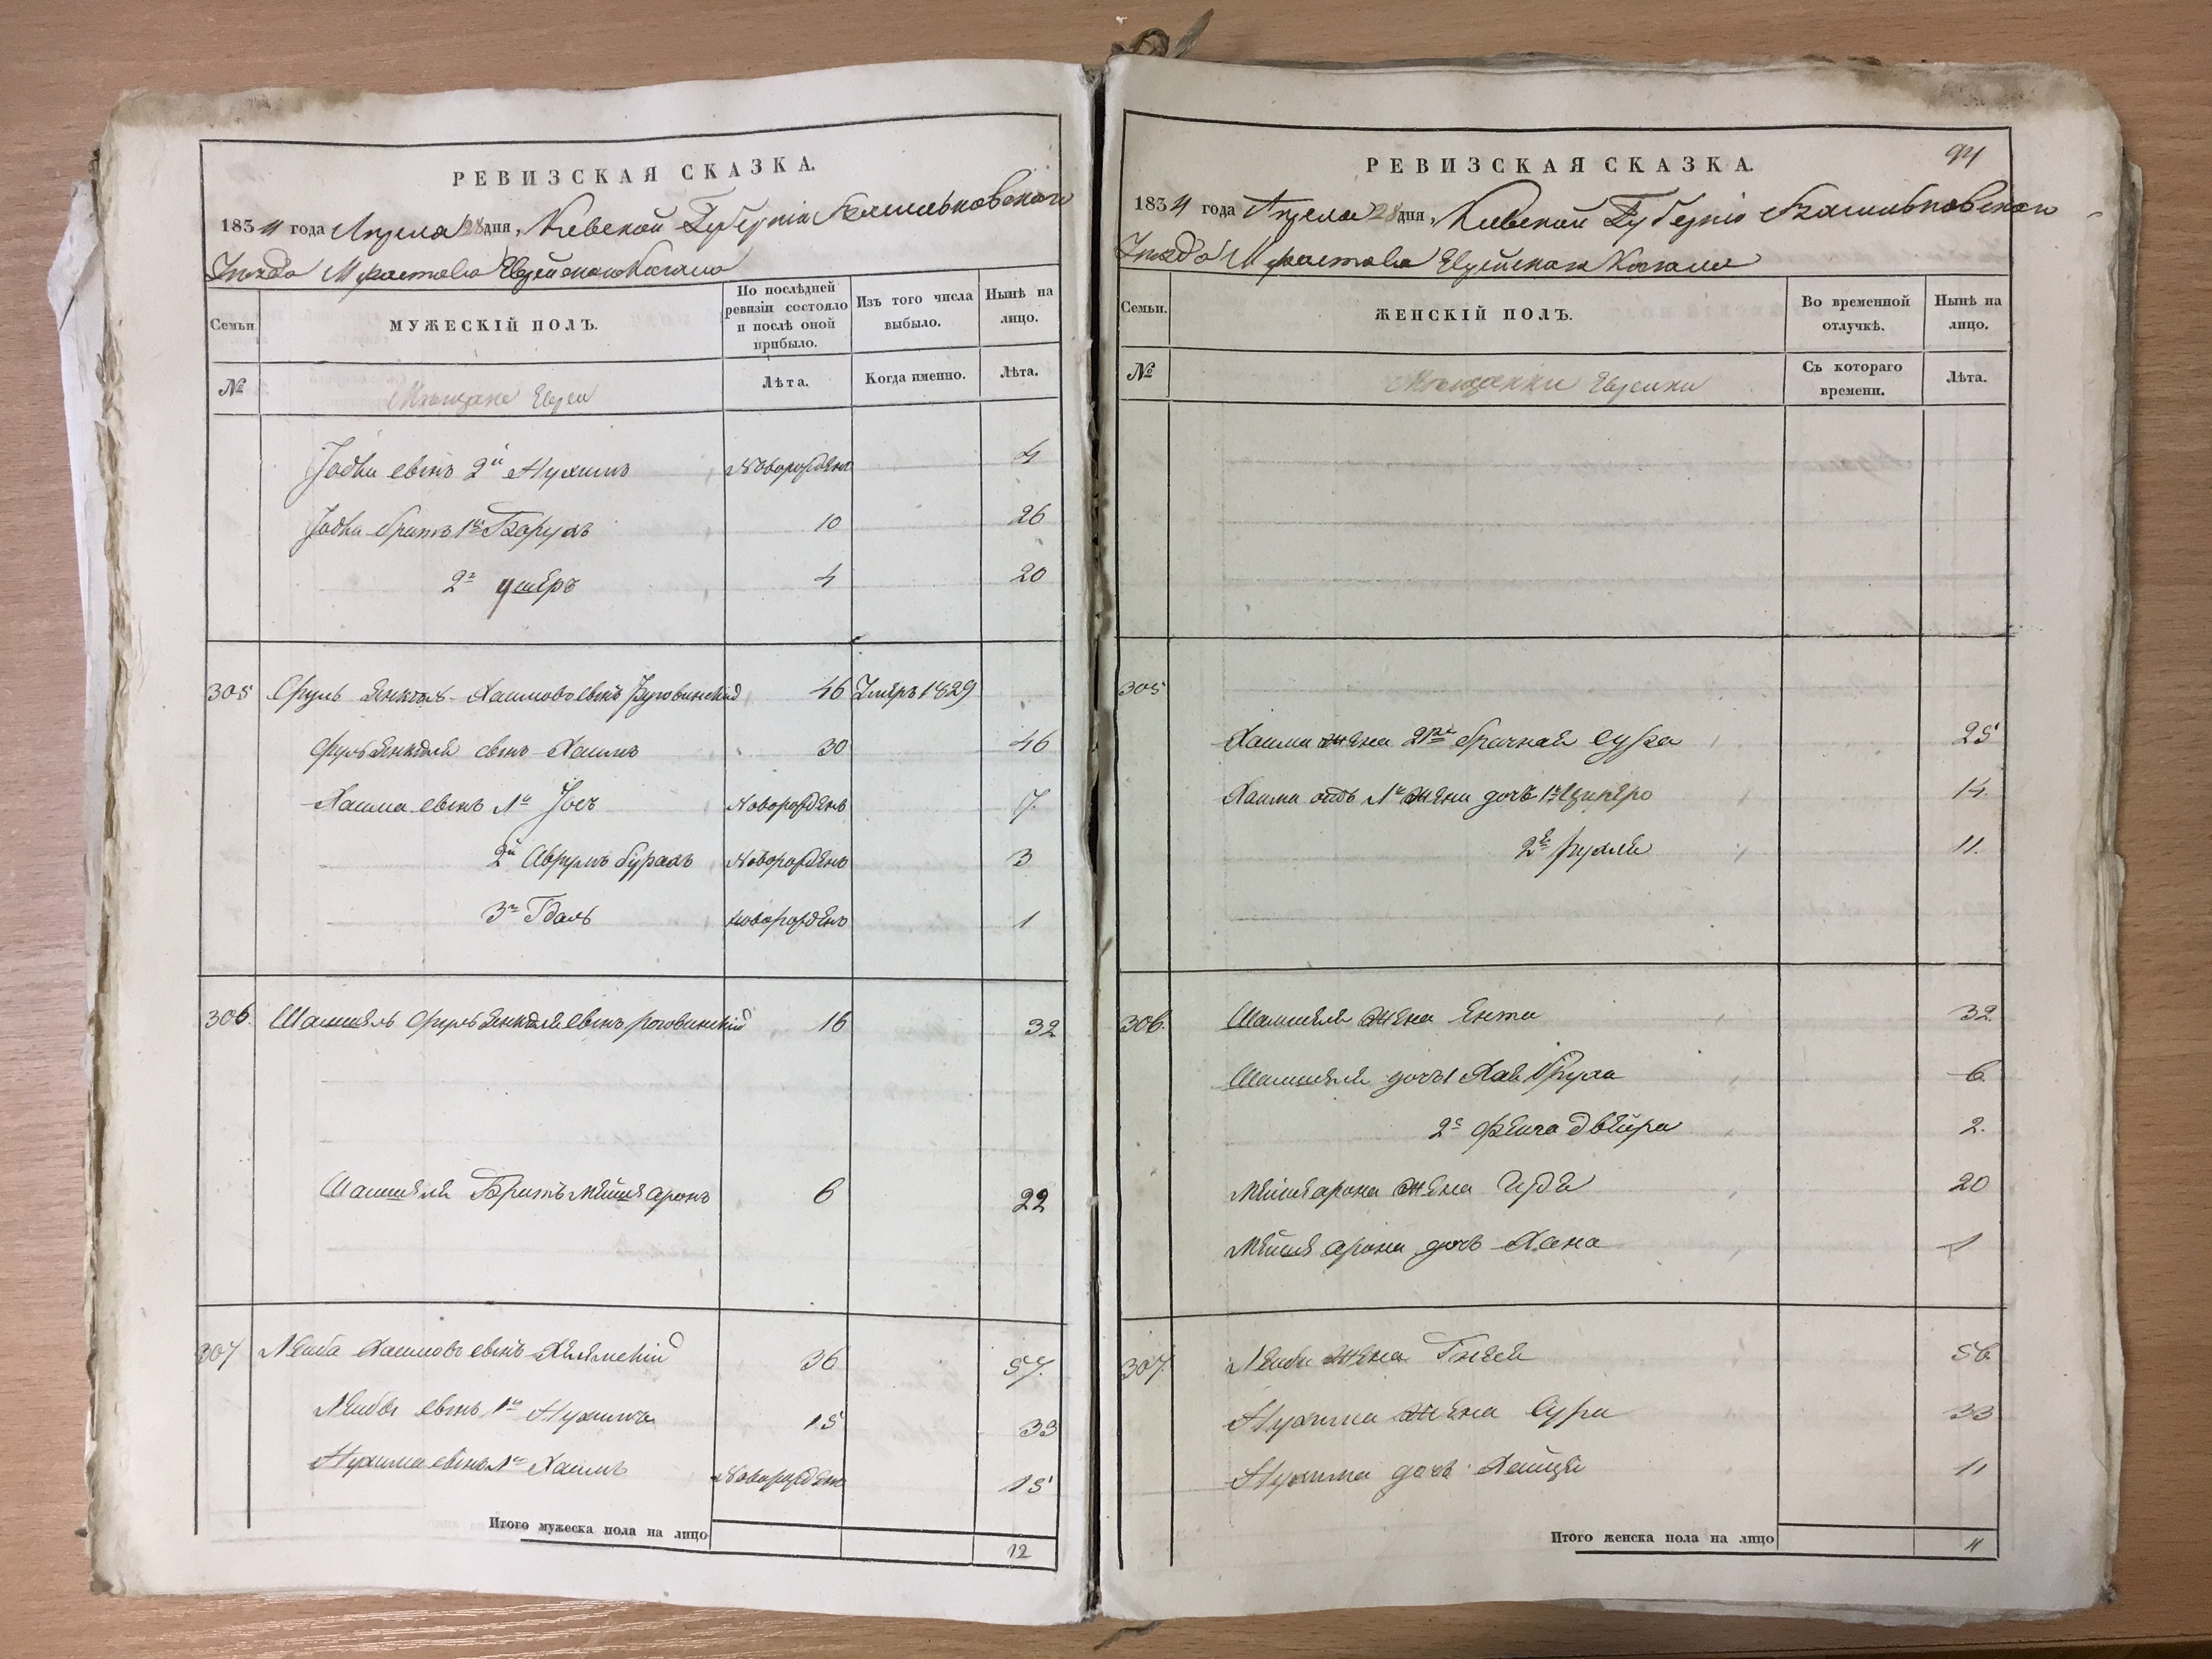 РЕВИЗСКАЯ СКАЗКА.
1834 года Апреля 28 дня, Киевской Губерніи Васильковского
Уезда М Фастова Еврейского Кагала
Семьи.
МУЖЕСКІЙ ПОЛЪ.
По послѣдней ревизіи состояло и послѣ оной прибыло.
Изъ того числа выбыло.
Нынѣ на лицо.
№
Мещане Евреи
Лѣта.
Когда именно.
Лѣта.
сынъ 2й Нухимъ Новорожденъ 4
братъ 1й Борухъ 10 26
2й 4 20
305 Сруль Янкель Хаимовъ сынъ 46 Умеръ 1829
Сруль Янкеля сынъ Хаимъ 30 46
Хаима сынъ 1й Новорожденъ 7
2й Аврумъ Новорожденъ 3
3й Гдаль новорожденъ 1
306 Шмшель Сруль Янкеля сынъ Роговинскій 16 32
братъ Мейше Аронъ 6 22
307 Лейба Хаимовъ сынъ 36 57.
Лейбы сынъ 1й Нухимъ 15 33
Нухима сынъ 1й Хаимъ Новорожденъ 15
Итого мужеска пола на лицо
12
РЕВИЗСКАЯ СКАЗКА.
94
1834 года Апреля 28 дня, Киевской Губерніи Васильковского
Уезда М Фастова Еврейского Кагала
Семьи.
ЖЕНСКІЙ ПОЛЪ.
Во временной отлучкѣ.
Нынѣ на лицо.
№
Мещанки Еврейки
Съ котораго времени.
Лѣта.
305
Хаима жена 2 брачная Сура 25
Хаима отъ 1й жены дочь 1я Ципера 14
2я Рухля 11.
306. жена Ента 32.
дочь 1 Хая Фрума 6.
2я Фейга Двейра 2.
Мейше Арона жена 20
Мейше Арона дочь Хана 1
307. Лейбы жена Гнеся 56
Нухима жена Сура 33
Нухима дочь 11
Итого женска пола на лицо
11